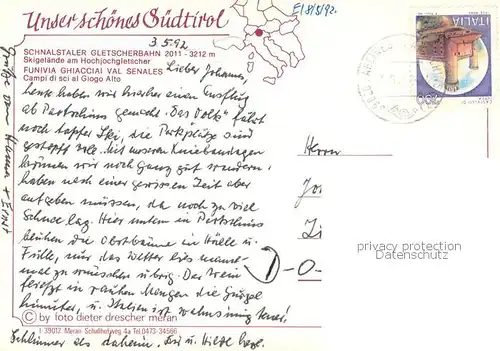 Unser schönes Südtirol
3.5.92
E/8/5/92.
SCHNALSTALER GLETSCHERBAHN 2011 - 3212 m
Skigelände am Hochjochgletscher
FUNIVIA GHIACCIAI VAL SENALES
Campi di sci al Giogo Alto
ITALIA
Lieber Johannes,
heute haben wir einen Ausflug
ab Partschins gemacht. Das Volk fährt
noch tapfer Ski, die Parkplätze sind
gestopft voll. Mit unseren Kniebandagen
können wir noch ganz gut wandern,
haben nach einer gewissen Zeit aber
aufgeben müssen, da noch zu viel
Schnee lag. Hier unten in Partschins
blühen die Obstbäume in Hülle u.
Fülle, nur das Wetter lies
mal zu wünschen übrig. Der Wein
fliesst in rauhen Mengen die Gurgel
hinunter, u. Italien ist wahnsinnig teuer!
Schlimmer als daheim.
Grüße von Hanna + Ernst
Herrn
D-O-
privacy protection
Datenschutz
© by foto dieter drescher meran
I: 39012 Meran Schafferhofweg 4a Tel.0473-34566